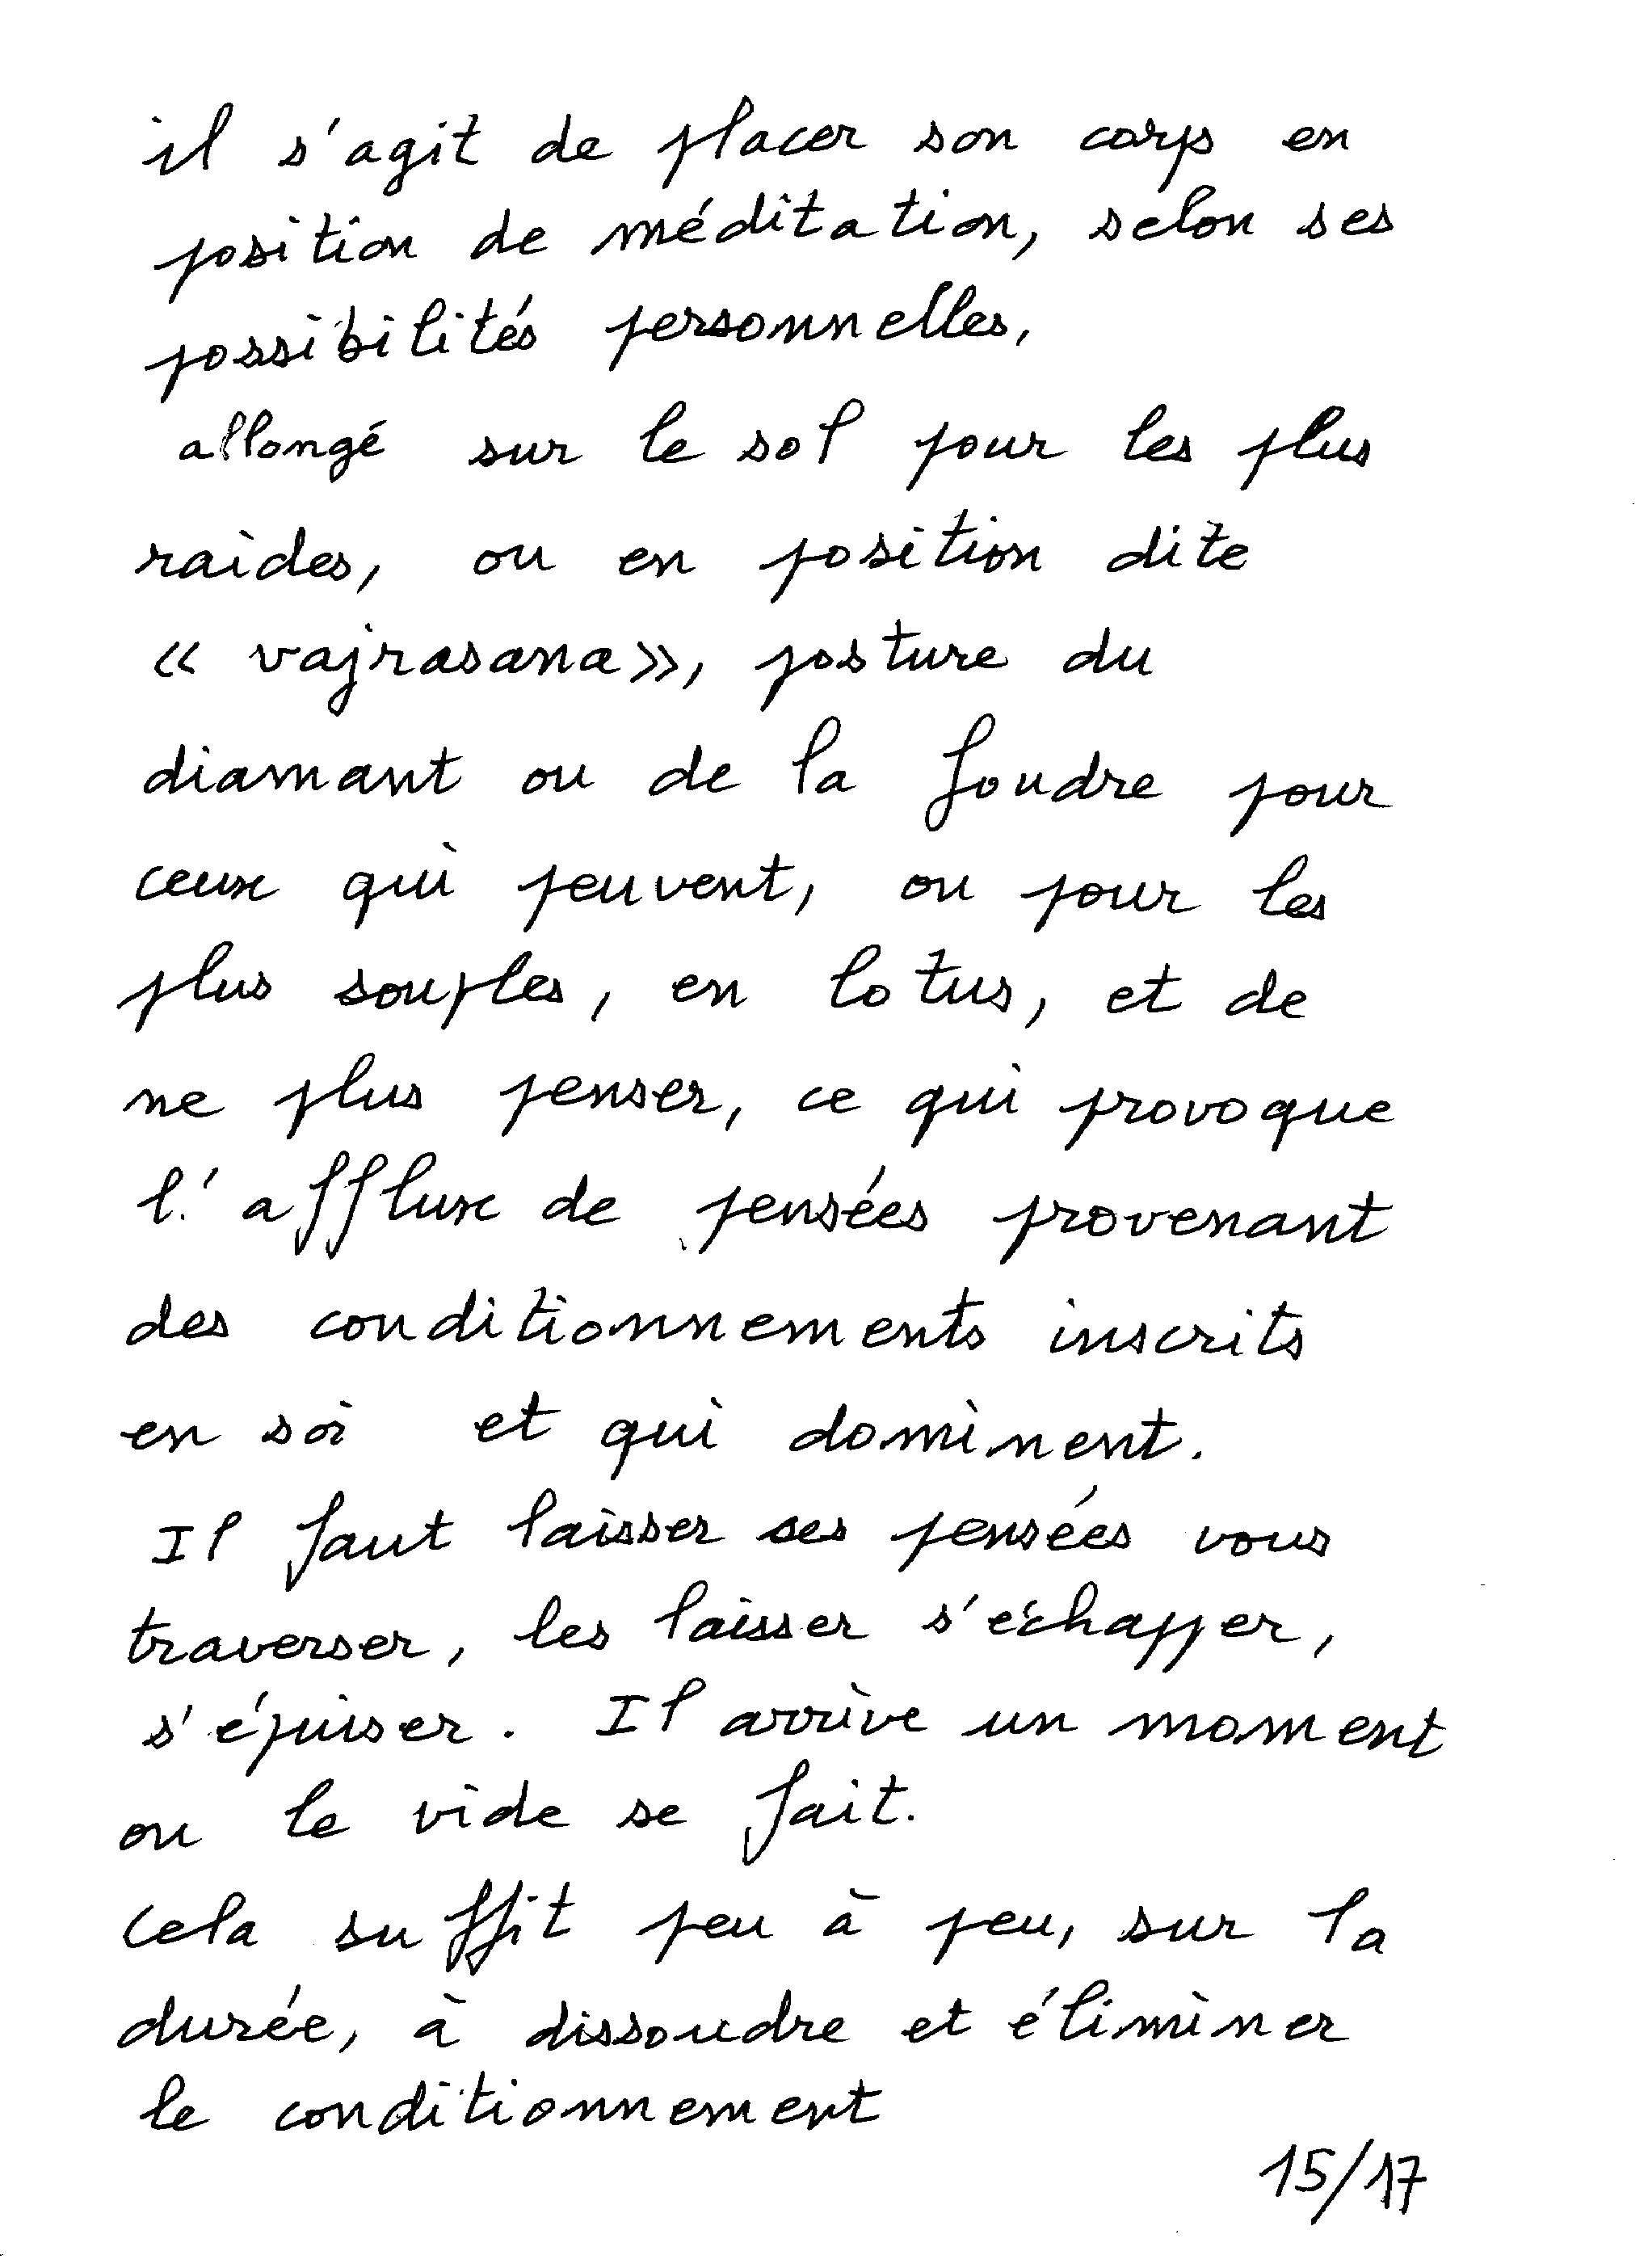 il s'agit de placer son corps en
position de méditation, selon ses
possibilités personnelles,
allongé sur le sol pour les plus
raides, ou en position dite
« vajrasana», posture du
diamant ou de la foudre pour
ceux qui peuvent, ou pour les
plus souples, en lotus, et de
ne plus penser, ce qui provoque
l'afflux de pensées provenant
des conditionnements inscrits
en soi et qui dominent.
Il faut laisser ces pensées vous
traverser, les laisser s'échapper,
s'épuiser. Il arrive un moment
ou le vide se fait.
Cela suffit peu à peu, sur la
durée, à dissoudre et éliminer
le conditionnement
15/17